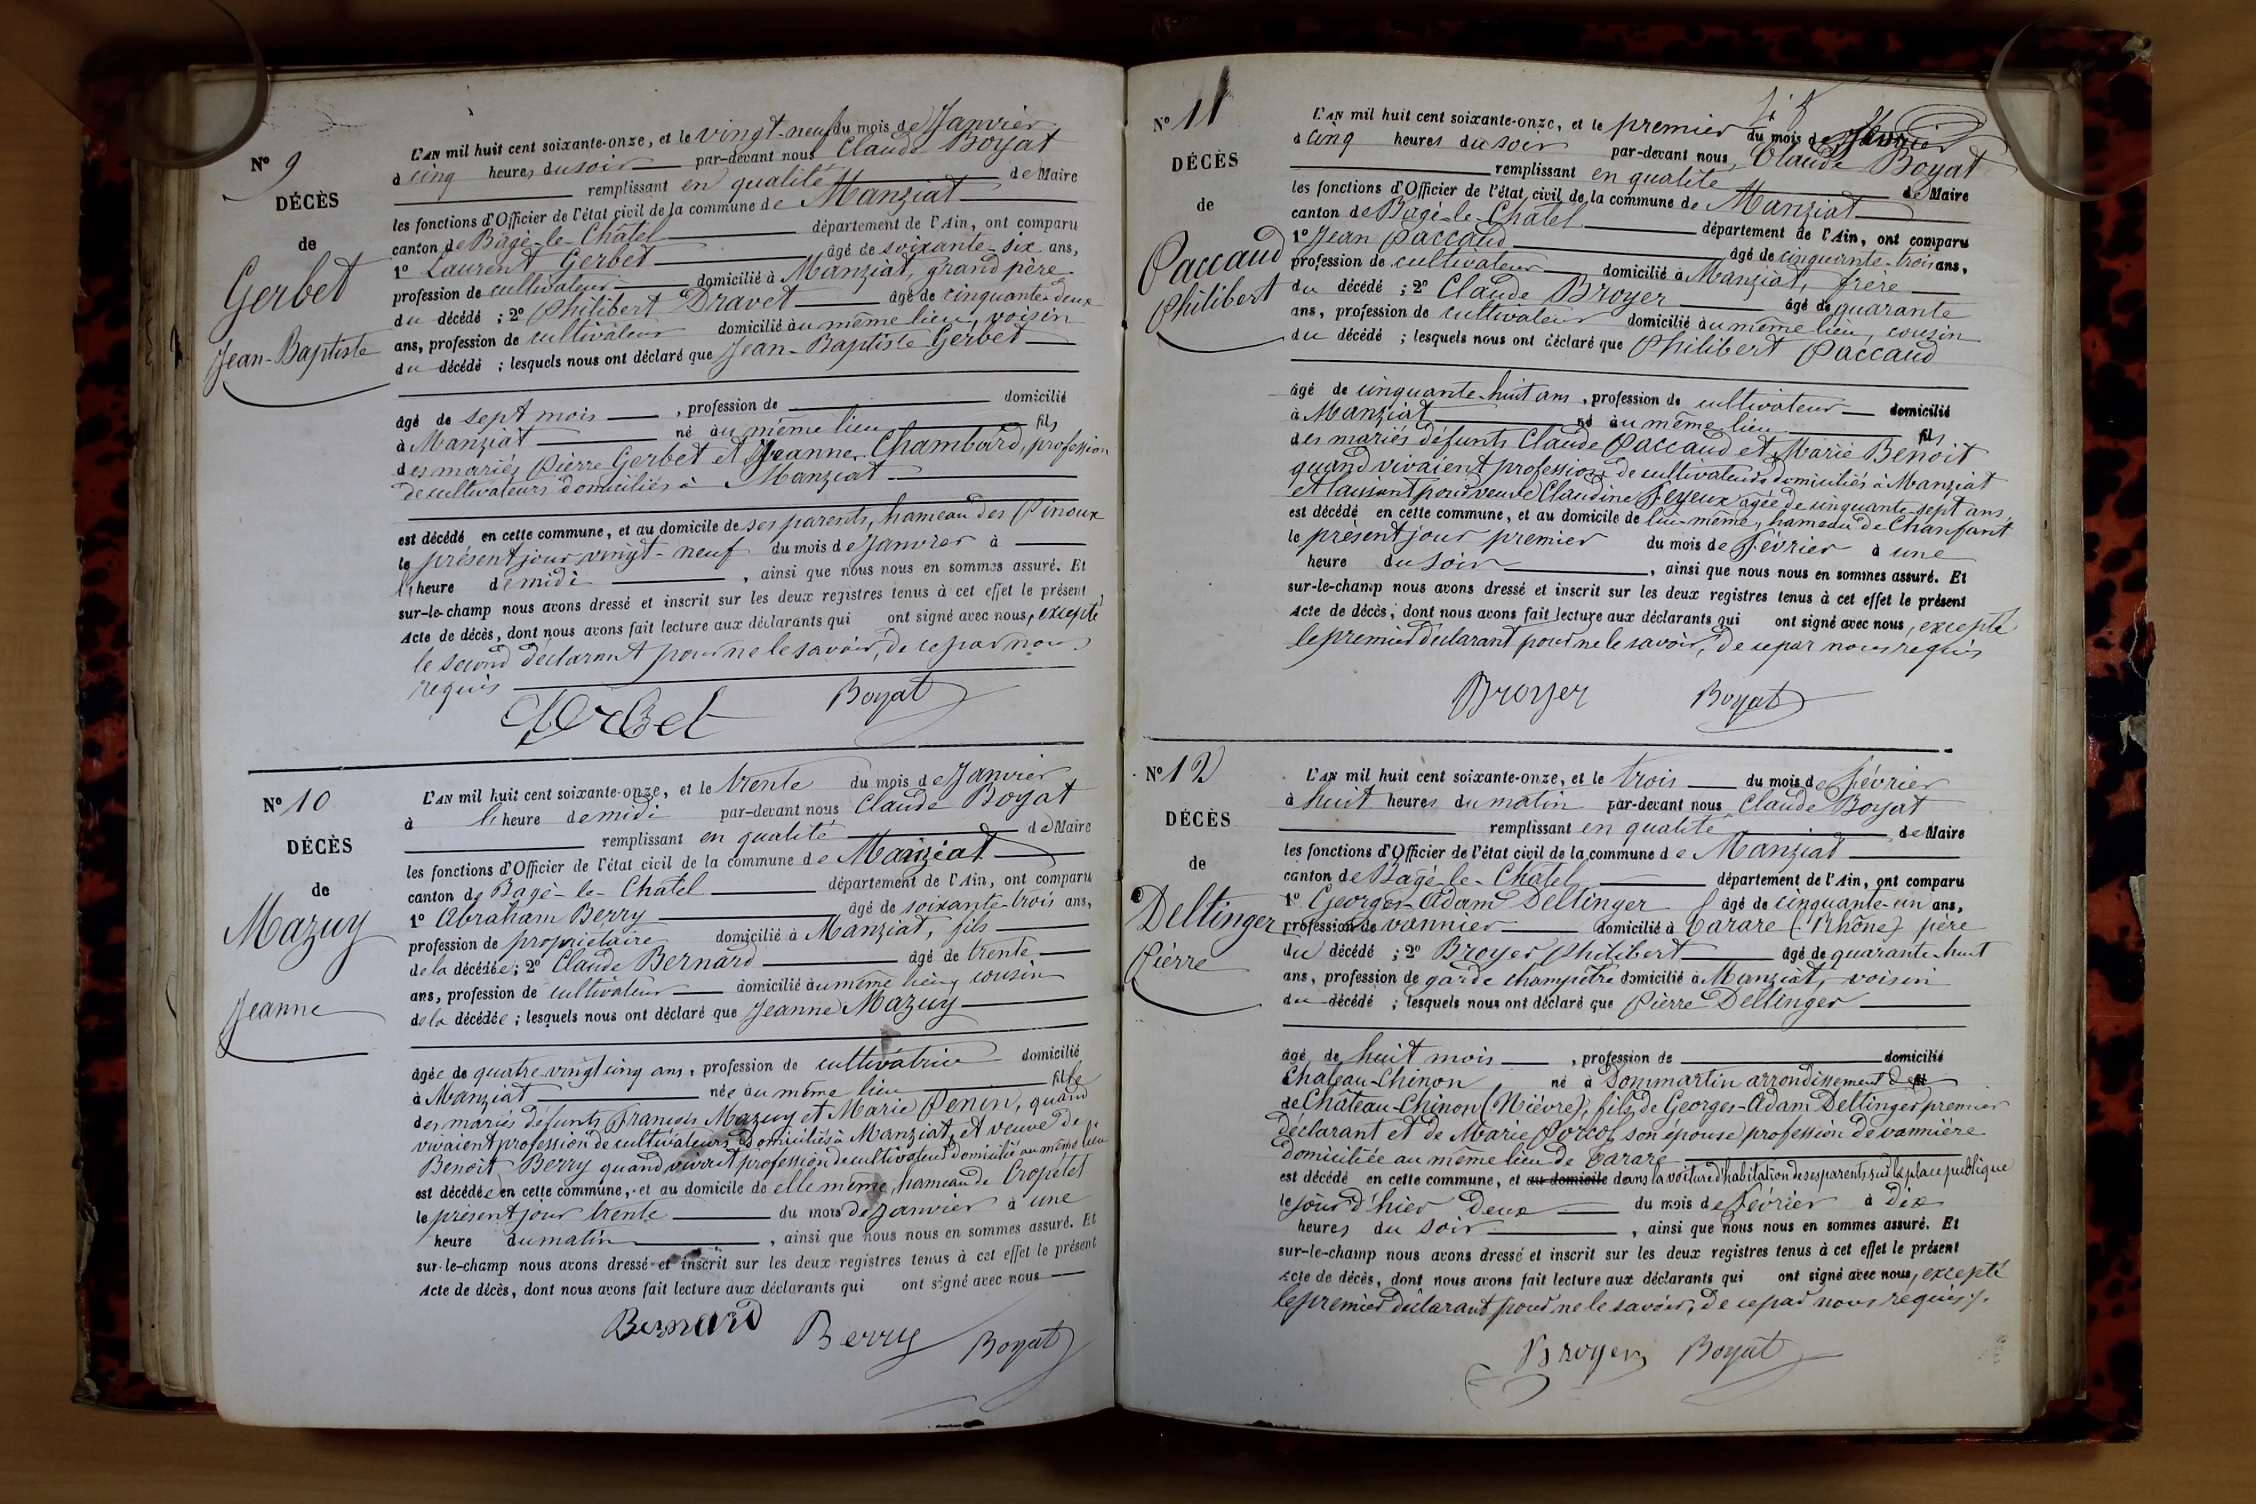 N° 9
DÉCÈS
de
Gerbet
Jean-Baptiste
L'AN mil huit cent soixante-onze, et le vingt-neuf du mois de Janvier
à cinq heures du soir par-devant nous Claude Boyat
remplissant en qualité de Maire
les fonctions d'Officier de l'état civil de la commune de Manziat
canton de Bagé-le-Châtel département de l'Ain, ont comparu
1° Laurent Gerbet âgé de soixante-six ans,
profession de cultivateur domicilié à Manziat, grand père
du décédé ; 2° Philibert Dravet âgé de cinquante-deux
ans, profession de cultivateur domicilié au même lieu, voisin
du décédé ; lesquels nous ont déclaré que Jean-Baptiste Gerbet
âgé de sept mois , profession de domicilié
à Manziat né au même lieu fils
des mariés Pierre Gerbet et Jeanne Chambard, profession
de cultivateurs domiciliés à Manziat
est décédé en cette commune, et au domicile de ses parents, hameau des Pinoux
le présent jour vingt-neuf du mois de Janvier à
l'heure de midi , ainsi que nous nous en sommes assuré. Et
sur-le-champ nous avons dressé et inscrit sur les deux registres tenus à cet effet le présent
Acte de décès, dont nous avons fait lecture aux déclarants qui ont signé avec nous, excepté
le second déclarant pour ne le savoir, de ce par nous
requis
Gerbet Boyat
N° 10
DÉCÈS
de
Mazuy
Jeanne
L'AN mil huit cent soixante-onze, et le trente du mois de Janvier
à l'heure de midi par-devant nous Claude Boyat
remplissant en qualité de Maire
les fonctions d'Officier de l'état civil de la commune de Manziat
canton de Bagé-le-Châtel département de l'Ain, ont comparu
1° Abraham Berry âgé de soixante-trois ans,
profession de propriétaire domicilié à Manziat, fils
de la décédée ; 2° Claude Bernard âgé de trente
ans, profession de cultivateur domicilié au même lieu, cousin
de la décédée ; lesquels nous ont déclaré que Jeanne Mazuy
âgée de quatre-vingt cinq ans, profession de cultivatrice domicilié
à Manziat née au même lieu fille
des mariés défunts François Mazuy et Marie Penin, quand
vivaient profession de cultivateurs domiciliés à Manziat, et veuve de
Benoit Berry quand vivait profession de cultivateur domicilié au même lieu
est décédée en cette commune, et au domicile de elle même, hameau de Cropetet
le présent jour trente du mois de Janvier à une
heure du matin , ainsi que nous nous en sommes assuré. Et
sur-le-champ nous avons dressé et inscrit sur les deux registres tenus à cet effet le présent
Acte de décès, dont nous avons fait lecture aux déclarants qui ont signé avec nous
Bernard Berry Boyat
N° 11
DÉCÈS
de
Paccaud
Philibert
L'AN mil huit cent soixante-onze, et le premier du mois de
à cinq heures du soir par-devant nous, Claude Boyat
remplissant en qualité de Maire
les fonctions d'Officier de l'état civil de la commune de Manziat
canton de Bagé-le-Châtel département de l'Ain, ont comparu
1° Jean Paccaud âgé de cinquante-trois ans,
profession de cultivateur domicilié à Manziat, frère
du décédé ; 2° Claude Broyer âgé de quarante
ans, profession de cultivateur domicilié au même lieu, cousin
du décédé ; lesquels nous ont déclaré que Philibert Paccaud
âgé de cinquante-huit ans, profession de cultivateur domicilié
à Manziat né au même lieu fils
des mariés défunts Claude Paccaud et Marie Benoit
quand vivaient profession de cultivateurs domiciliés à Manziat
et laissant pour veuve Claudine Feyeux âgée de cinquante-sept ans
est décédé en cette commune, et au domicile de lui-même, hameau de Chanfant
le présent jour premier du mois de Février à une
heure du soir , ainsi que nous nous en sommes assuré. Et
sur-le-champ nous avons dressé et inscrit sur les deux registres tenus à cet effet le présent
Acte de décès, dont nous avons fait lecture aux déclarants qui ont signé avec nous, excepté
le premier déclarant pour ne le savoir, de ce par nous requis
Broyer Boyat
N° 12
DÉCÈS
de
Deltinger
Pierre
L'AN mil huit cent soixante-onze, et le trois du mois de Février
à huit heures du matin par-devant nous Claude Boyat
remplissant en qualité de Maire
les fonctions d'Officier de l'état civil de la commune de Manziat
canton de Bagé-le-Châtel département de l'Ain, ont comparu
1° Georges-Adam Deltinger âgé de cinquante-un ans,
profession de vannier domicilié à Tarare (Rhône) père
du décédé ; 2° Broyer Philibert âgé de quarante-huit
ans, profession de garde champêtre domicilié à Manziat, voisin
du décédé ; lesquels nous ont déclaré que Pierre Deltinger
âgé de huit mois , profession de domicilié
Chateau-Chinon né à Dommartin arrondissement de
de Château-Chinon (Nièvre), fils de Georges-Adam Deltinger premier
déclarant et de Marie Porcof son épouse profession de vannière
domiciliée au même lieu de Tarare
est décédé en cette commune, et au domicile dans la voiture d'habitation de ses parents sur la place publique
le jour d'hier deux du mois de Février à dix
heures du soir , ainsi que nous nous en sommes assuré. Et
sur-le-champ nous avons dressé et inscrit sur les deux registres tenus à cet effet le présent
Acte de décès, dont nous avons fait lecture aux déclarants qui ont signé avec nous, excepté
le premier déclarant pour ne le savoir, de ce par nous requis
Broyer Boyat